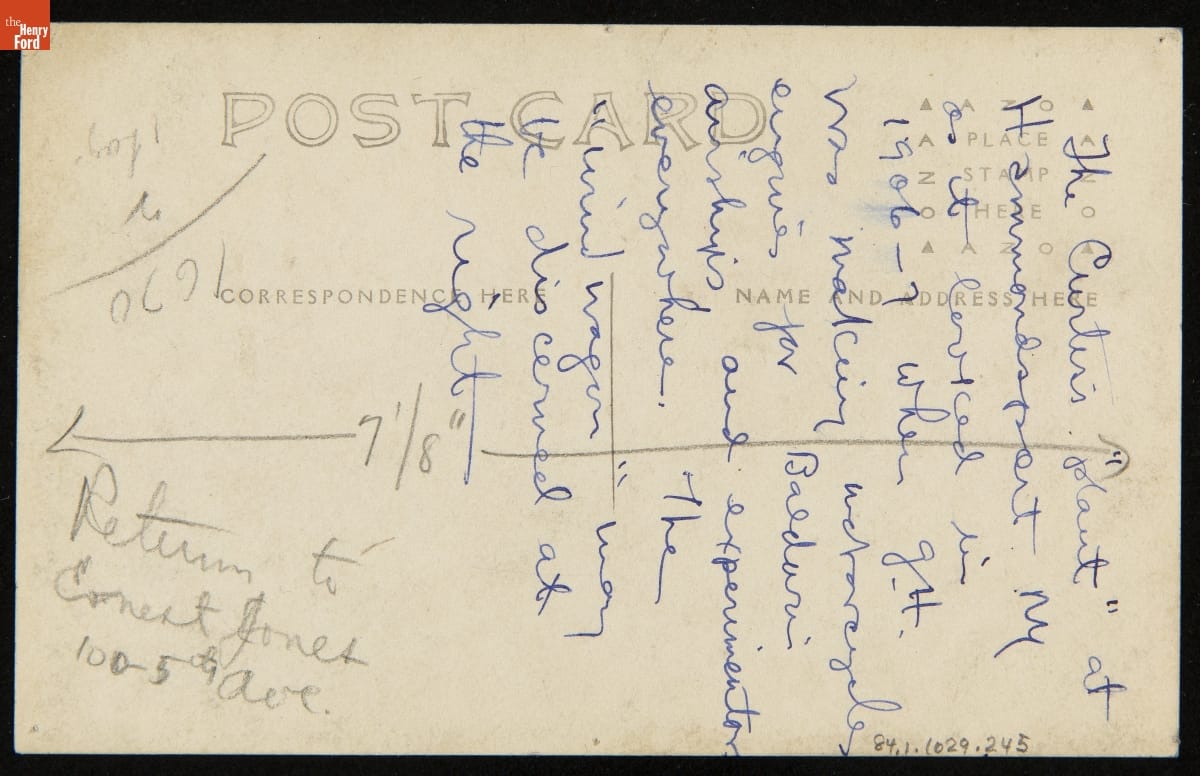 the
Henry
Ford
POST CARD
AZO
PLACE
STAMP
HERE
AZO
CORRESPONDENCE HERE
NAME AND ADDRESS HERE
The Curtiss "plant" at
Hammondsport NY
as it looked in
1906-7 when G.H.
was making motorcycle
engines for Baldwin
airships and experimenters
everywhere. The
"wind wagon" may
be discerned at
the right
7 1/8"
Return to
Ernest Jones
100-5th Ave.
84.1.1029.245